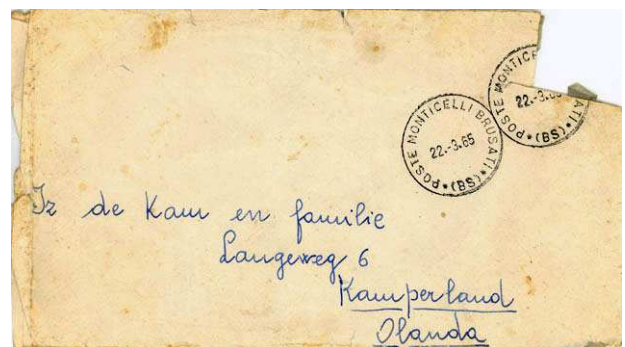 POSTE MONTICELLI BRUSATI * (BS) *
22.-3.65
POSTE MONTICE ATI * (BS) *
22.-3.65
Iz de Kam en familie
Langeweg 6
Kamperland
Olanda